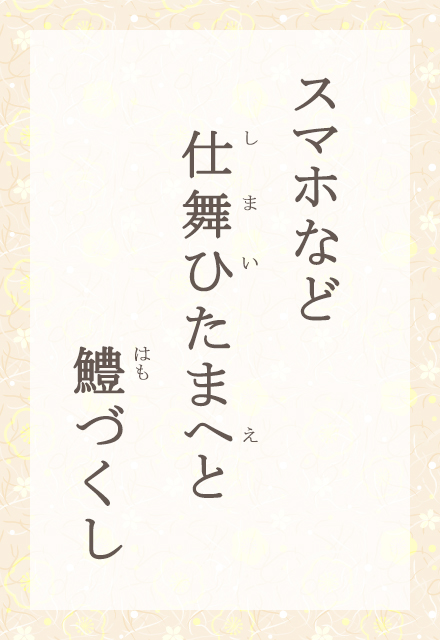 スマホなど
仕舞ひたまへと
しまいえ
鱧づくし
はも